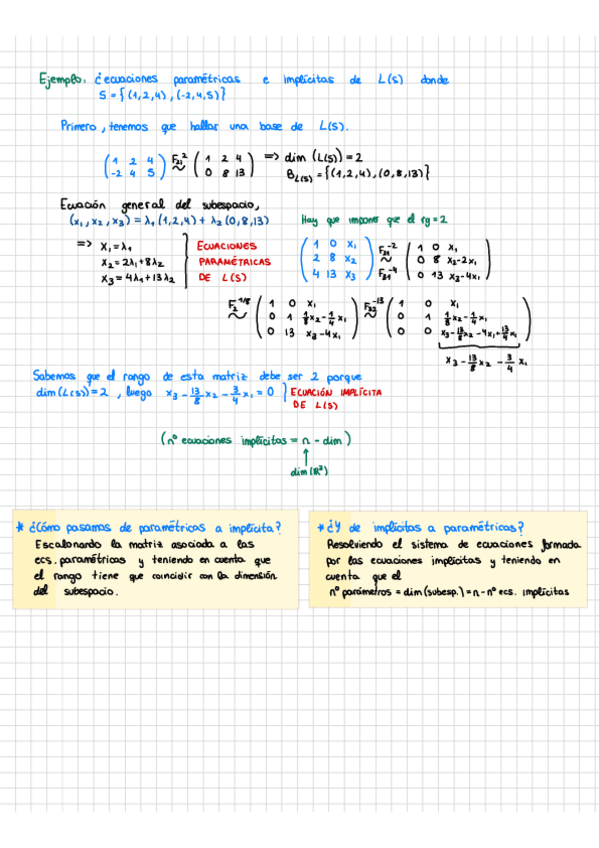 Ejemplo: ¿ecuaciones paramétricas e implícitas de L(S) donde
S = {(1,2,4), (-2,4,5)}
Primero, tenemos que hallar una base de L(S).
( 1 2 4 ; -2 4 5 ) F21^2 ~ ( 1 2 4 ; 0 8 13 ) => dim (L(S)) = 2
B_L(S) = {(1,2,4), (0,8,13)}
Ecuación general del subespacio,
(x₁, x₂, x₃) = λ₁ (1,2,4) + λ₂ (0,8,13)
=> x₁ = λ₁
x₂ = 2λ₁ + 8λ₂
x₃ = 4λ₁ + 13λ₂
ECUACIONES
PARAMÉTRICAS
DE L(S)
Hay que imponer que el rg = 2
( 1 0 x₁ ; 2 8 x₂ ; 4 13 x₃ ) F21^-2 F31^-4 ~ ( 1 0 x₁ ; 0 8 x₂-2x₁ ; 0 13 x₃-4x₁ )
F2^1/8 ~ ( 1 0 x₁ ; 0 1 1/8x₂ - 1/4x₁ ; 0 13 x₃-4x₁ ) F32^-13 ~ ( 1 0 x₁ ; 0 1 1/8x₂ - 1/4x₁ ; 0 0 x₃ - 13/8x₂ - 4x₁ + 13/4x₁ )
x₃ - 13/8 x₂ - 3/4 x₁
Sabemos que el rango de esta matriz debe ser 2 porque
dim(L(S)) = 2, luego x₃ - 13/8 x₂ - 3/4 x₁ = 0 } ECUACIÓN IMPLÍCITA
DE L(S)
(nº ecuaciones implícitas = n - dim)
↑
dim(ℝ³)
* ¿Cómo pasamos de paramétricas a implícita?
Escalonando la matriz asociada a las
ecs. paramétricas y teniendo en cuenta que
el rango tiene que coincidir con la dimensión
del subespacio.
* ¿Y de implícitas a paramétricas?
Resolviendo el sistema de ecuaciones formada
por las ecuaciones implícitas y teniendo en
cuenta que el
nº parámetros = dim(subesp.) = n - nº ecs. implícitas